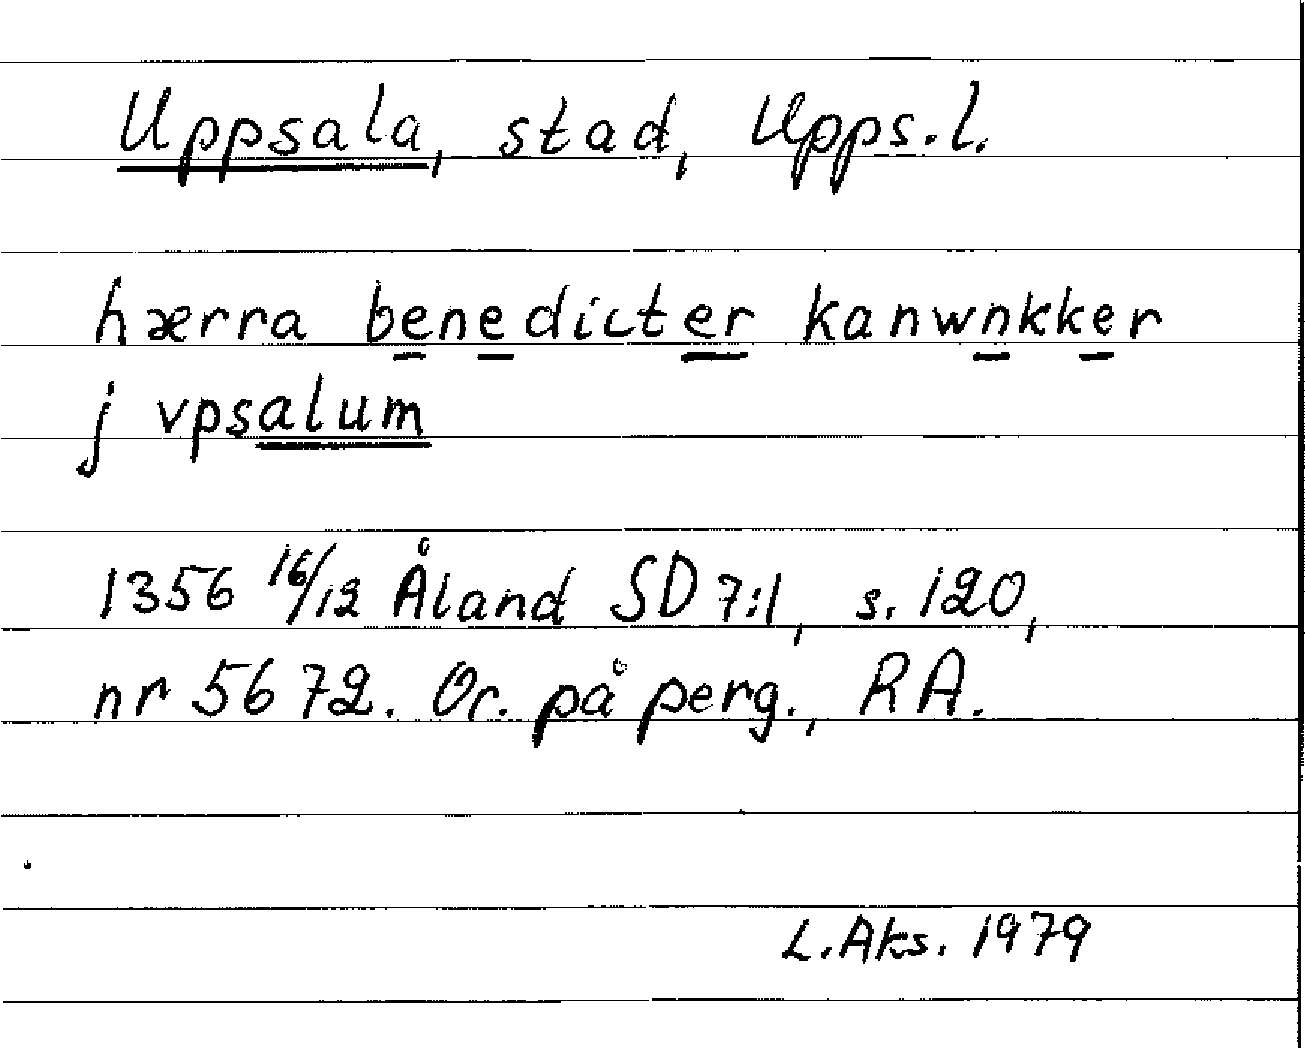 Uppsala, stad, Upps.l.
hærra benedicter kanwnkker
j vpsalum
1356 16/12 Åland SD 7:1, s. 120,
nr 5672. Or. på perg., RA.
L.Aks. 1979